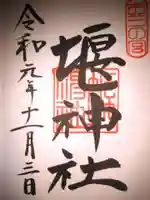 堰神社
令和元年十一月三日